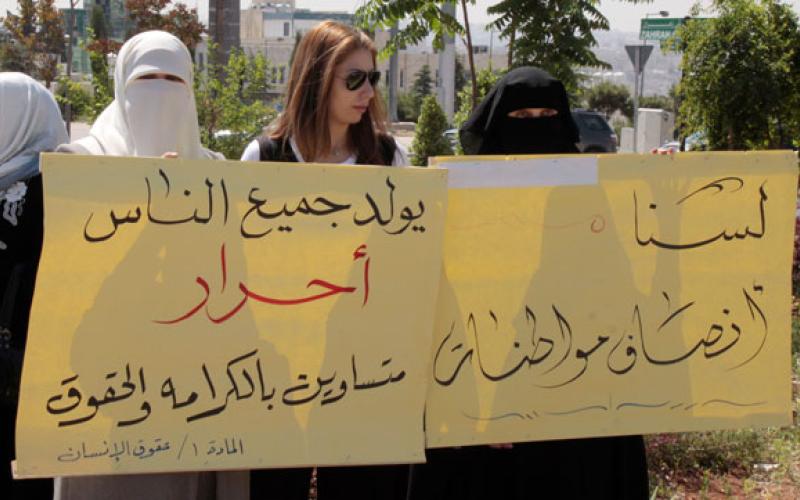 يولد جميع الناس
أحرار
متساوين بالكرامه والحقوق
المادة ١/ حقوق الإنسان
لسنا
أنصاف مواطنات